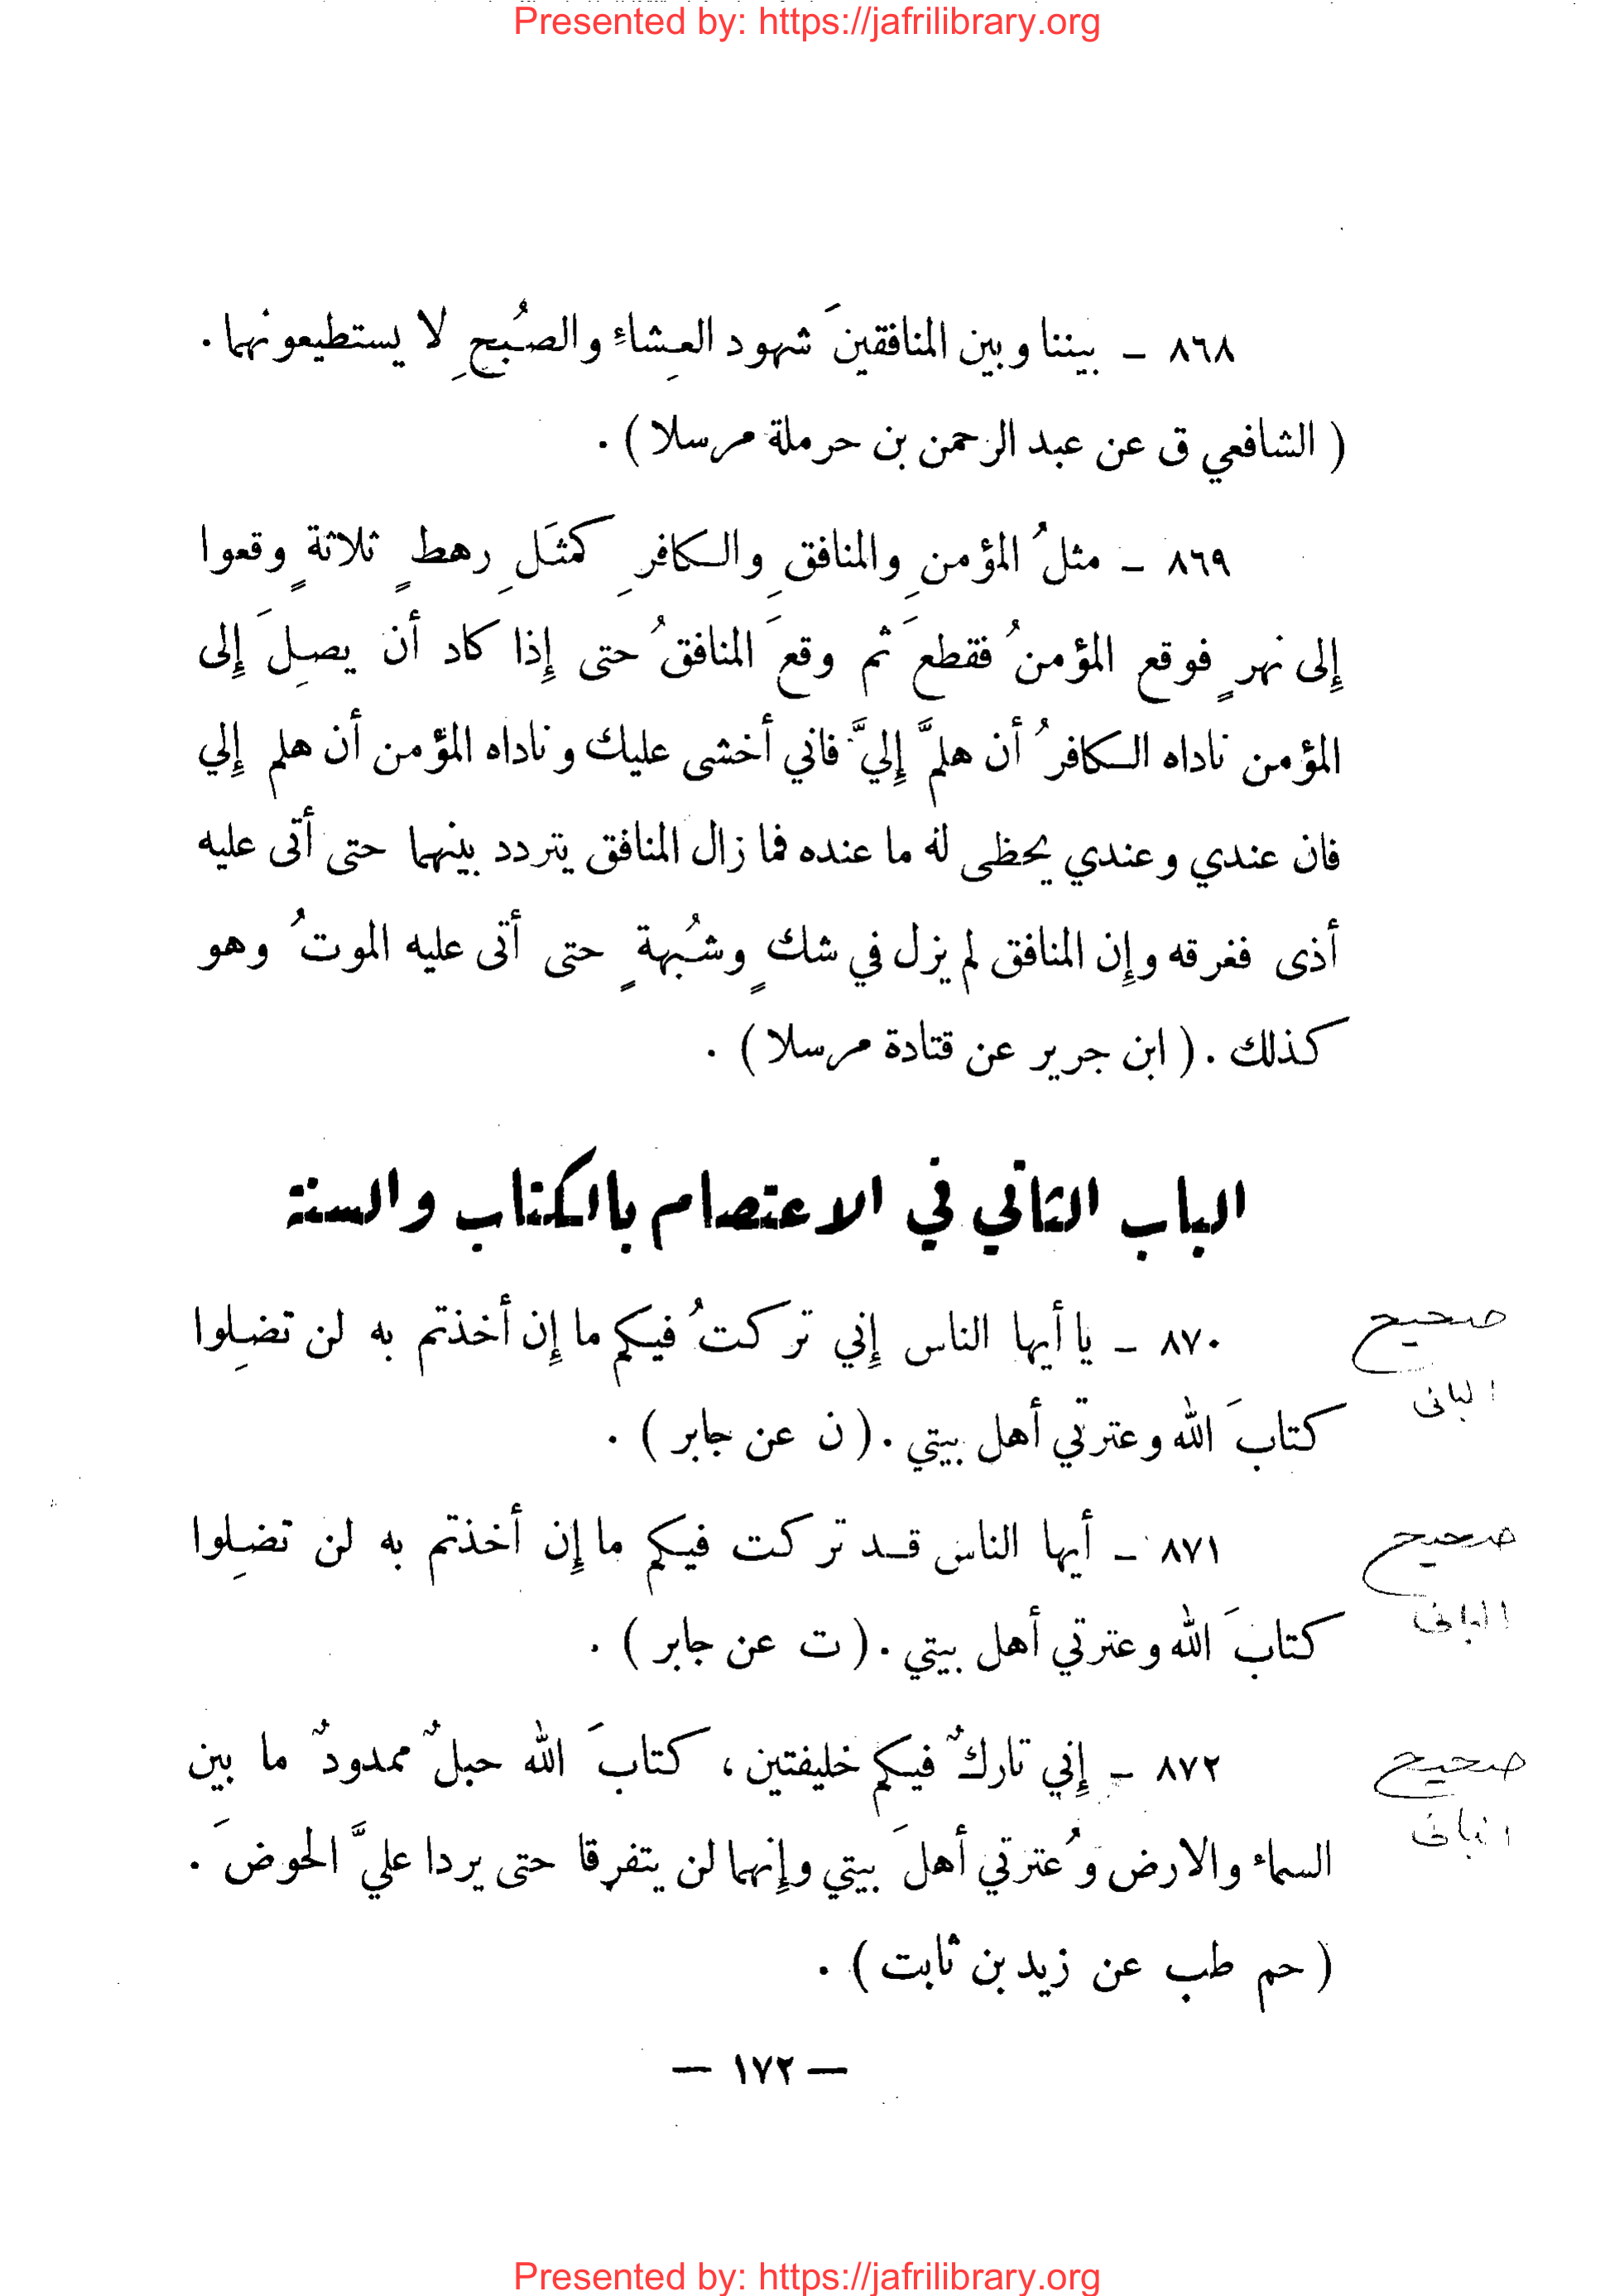 Presented by: https://jafrilibrary.org
٨٦٨ - بيننا وبين المنافقينَ شهود العِشاءِ والصُبحِ لا يستطيعونهما .
( الشافعي ق عن عبد الرحمن بن حرملة مرسلا ) .
٨٦٩ - مثلُ المؤمنِ والمنافقِ والكافرِ كمثَلِ رهطٍ ثلاثةٍ وقعوا
إِلى نهرٍ فوقع المؤمنُ فقطعَ ثم وقعَ المنافقُ حتى إِذا كاد أن يصِلَ إِلى
المؤمن ناداه الكافرُ أن هلمَّ إِليَّ فاني أخشى عليك وناداه المؤمن أن هلم إِلي
فان عندي وعندي يحظى له ما عنده فما زال المنافق يتردد بينهما حتى أتى عليه
أذى فغرقه وإِن المنافق لم يزل في شكٍ وشُبهةٍ حتى أتى عليه الموتُ وهو
كذلك . ( ابن جرير عن قتادة مرسلا ) .
الباب الثاني في الاعتصام بالكتاب والسنة
٨٧٠ - يا أيها الناس إِني تركتُ فيكم ما إِن أخذتم به لن تضِلوا
صحيح
البانى
كتابَ الله وعترتي أهل بيتي . ( ن عن جابر ) .
٨٧١ - أيها الناس قد تركت فيكم ما إِن أخذتم به لن تضِلوا
صحيح
البانى
كتابَ الله وعترتي أهل بيتي . ( ت عن جابر ) .
٨٧٢ - إِني تاركٌ فيكم خليفتين ، كتابَ الله حبلٌ ممدودٌ ما بين
صحيح
البانى
السماء والارض وُعترتي أهلَ بيتي وإِنهما لن يتفرقا حتى يردا عليَّ الحوضَ .
( حم طب عن زيد بن ثابت ) .
— ١٧٢ —
Presented by: https://jafrilibrary.org